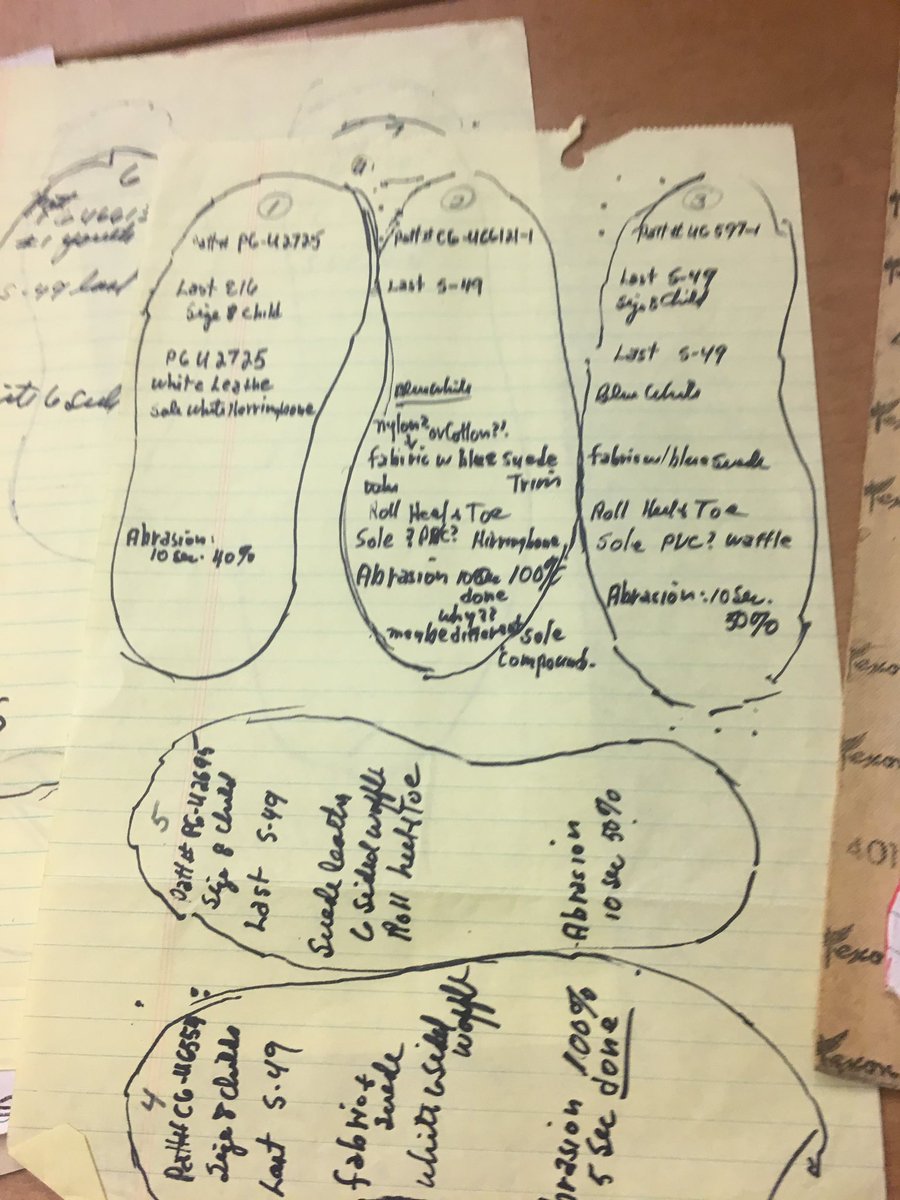 1
Patt# PG-U2725
Last E16
Size 8 Child
PG U2725
White Leathe
Sole White Herringbone
Abrasion:
10 Sec. 40%
2
Patt# CG-UG6121-1
Last S-49
Blue White
nylon? or Cotton??
fabric w blue Suede
Trim
Roll Heel & Toe
Sole ? PVC? Hirringbone
Abrasion 10 Sec 100%
done
why??
maybe different sole
Compound.
3
Patt# UG597-1
Last S-49
Size 8 Child
Last S-49
Blue White
fabric w/blue suede
Roll Heel & Toe
Sole PVC? waffle
Abrasion: 10 Sec.
50%
5
Patt# PG-U2695
Size 8 Child
Last S-49
Suede leather
6 Sided waffle
Roll heel & Toe
Abrasion
10 sec 50%
4
Patt# CG-UG359
Size 8 Childs
Last S-49
fabric &
suede
white 6 sided
waffle
brasion 100%
5 Sec done
6
#1 youth
S-49 last
Texon
401
Texon
Texon